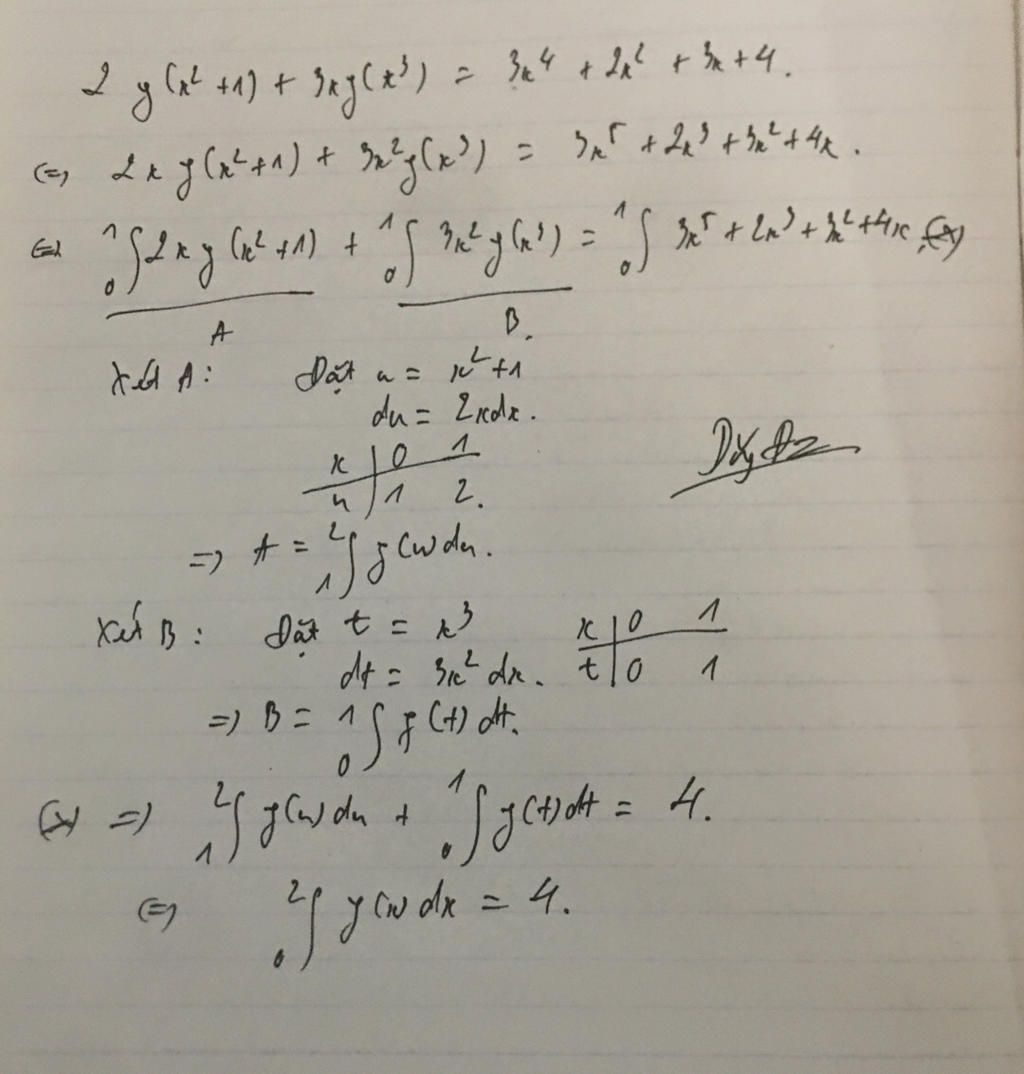 2 y(x² + 1) + 3xy(x³) = 3x⁴ + 2x² + 3x + 4.
<=> 2x y(x² + 1) + 3x² y(x³) = 3x⁵ + 2x³ + 3x² + 4x.
<=> ₀¹∫ 2x y(x² + 1) + ₀¹∫ 3x² y(x³) = ₀¹∫ 3x⁵ + 2x³ + 3x² + 4x (*)
A B.
Xét A: Đặt u = x² + 1
du = 2xdx.
x | 0 1
u | 1 2.
=> A = ₁²∫ y(u) du.
Xét B: Đặt t = x³ x | 0 1
dt = 3x² dx. t | 0 1
=> B = ₀¹∫ y(t) dt.
(*) => ₁²∫ y(u) du + ₀¹∫ y(t) dt = 4.
<=> ₀²∫ y(x) dx = 4.